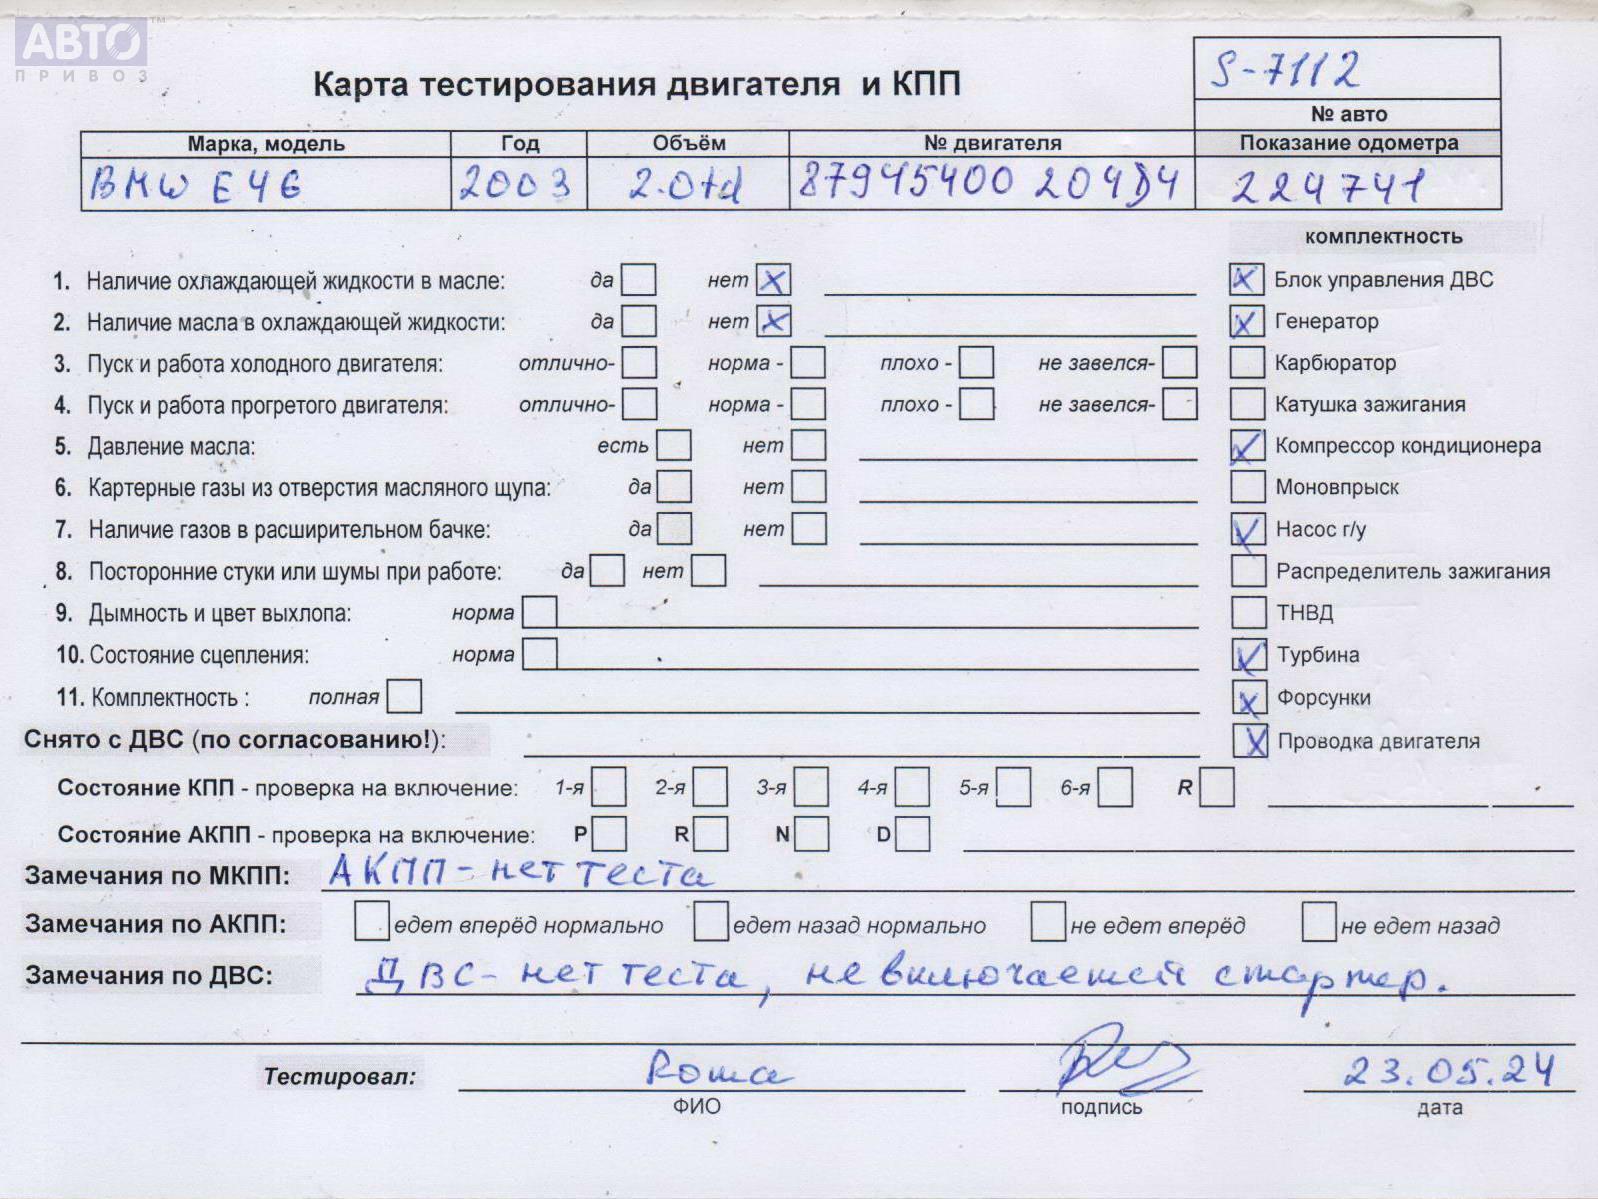 АВТО ™
ПРИВОЗ
S-7112
Карта тестирования двигателя и КПП
№ авто
Марка, модель Год Объём № двигателя Показание одометра
BMW E46 2003 2.0td 87945400 204D4 224741
комплектность
1. Наличие охлаждающей жидкости в масле: да нет X Блок управления ДВС
2. Наличие масла в охлаждающей жидкости: да нет X Генератор
3. Пуск и работа холодного двигателя: отлично- норма - плохо - не завелся- Карбюратор
4. Пуск и работа прогретого двигателя: отлично- норма - плохо - не завелся- Катушка зажигания
5. Давление масла: есть нет Компрессор кондиционера
6. Картерные газы из отверстия масляного щупа: да нет Моновпрыск
7. Наличие газов в расширительном бачке: да нет Насос г/у
8. Посторонние стуки или шумы при работе: да нет Распределитель зажигания
9. Дымность и цвет выхлопа: норма ТНВД
10. Состояние сцепления: норма Турбина
11. Комплектность : полная Форсунки
Снято с ДВС (по согласованию!): Проводка двигателя
Состояние КПП - проверка на включение: 1-я 2-я 3-я 4-я 5-я 6-я R
Состояние АКПП - проверка на включение: P R N D
Замечания по МКПП: АКПП - нет теста
Замечания по АКПП: едет вперёд нормально едет назад нормально не едет вперёд не едет назад
Замечания по ДВС: ДВС - нет теста, не включается стартер.
Тестировал: Рома 23.05.24
ФИО подпись дата